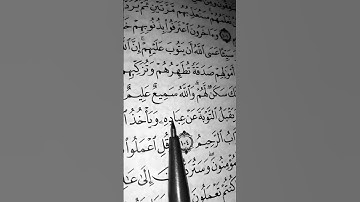 سَنُعَذِّبُهُم مَّرَّتَيْنِ ثُمَّ يُرَدُّ
وَءَاخَرُونَ ٱعْتَرَفُوا۟ بِذُنُوبِهِمْ خَ
سَيِّئًا عَسَى ٱللَّهُ أَن يَتُوبَ عَلَيْهِمْ إِنَّ ٱللَّ
أَمْوَٰلِهِمْ صَدَقَةً تُطَهِّرُهُمْ وَتُزَكِّيهِم
كَ سَكَنٌ لَّهُمْ وَٱللَّهُ سَمِيعٌ عَلِيمٌ
يَقْبَلُ ٱلتَّوْبَةَ عَنْ عِبَادِهِۦ وَيَأْخُذُ ٱ
ابُ ٱلرَّحِيمُ ١٠٤ وَقُلِ ٱعْمَلُوا۟
مُؤْمِنُونَ وَسَتُرَدُّ إِلَىٰ عَـٰ
كُنتُمْ تَعْمَلُونَ